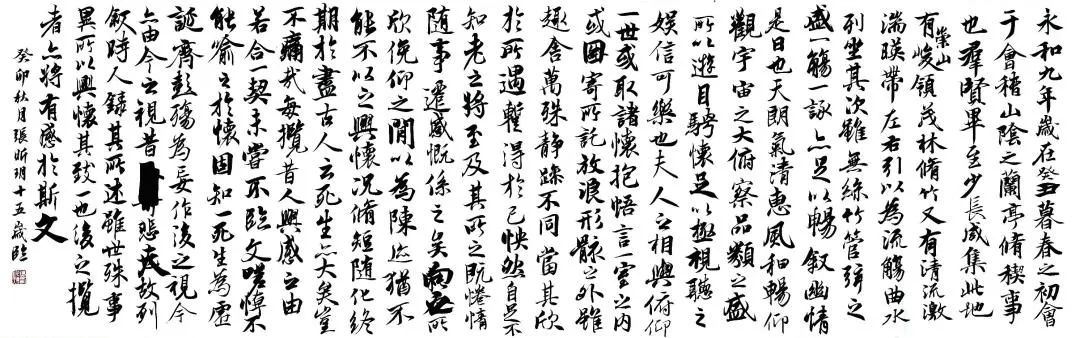 永和九年歲在癸丑暮春之初會
于會稽山陰之蘭亭脩稧事
也羣賢畢至少長咸集此地
有崇山峻領茂林脩竹又有清流激
湍暎帶左右引以為流觴曲水
列坐其次雖無絲竹管弦之
盛一觴一詠亦足以暢叙幽情
是日也天朗氣清惠風和暢仰
觀宇宙之大俯察品類之盛
所以遊目騁懷足以極視聽之
娛信可樂也夫人之相與俯仰
一世或取諸懷抱悟言一室之內
或因寄所託放浪形骸之外雖
趣舍萬殊静躁不同當其欣
於所遇蹔得於己怏然自足不
知老之將至及其所之既惓情
隨事遷感慨係之矣向之所
欣俛仰之間以為陳迹猶不
能不以之興懷況脩短隨化終
期於盡古人云死生亦大矣豈
不痛哉每攬昔人興感之由
若合一契未嘗不臨文嗟悼不
能喻之於懷固知一死生為虛
誕齊彭殤為妄作後之視今
亦由今之視昔悲夫故列
叙時人錄其所述雖世殊事
異所以興懷其致一也後之攬
者亦將有感於斯文
癸卯秋月張昕玥十五歲臨